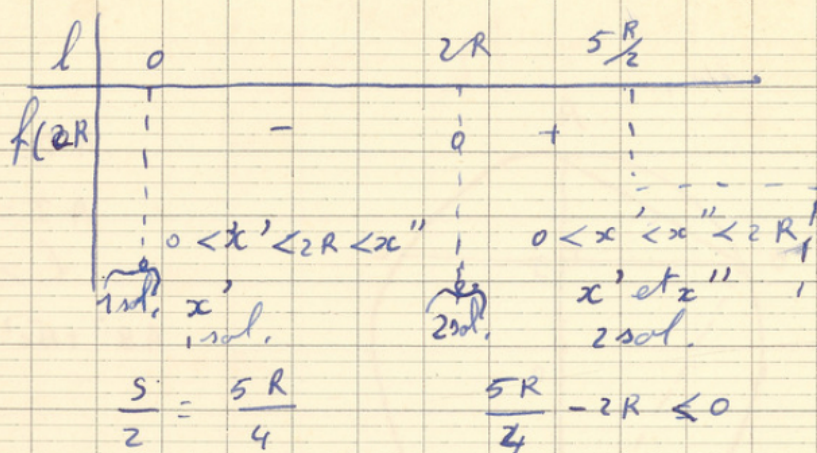 l 0 2R 5R/2
f(2R - 0 +
0 < x' < 2R < x'' 0 < x' < x'' < 2R
1 sol. x' 2 sol. x' et x''
1 sol. 2 sol.
S/2 = 5R/4 5R/4 - 2R ≤ 0